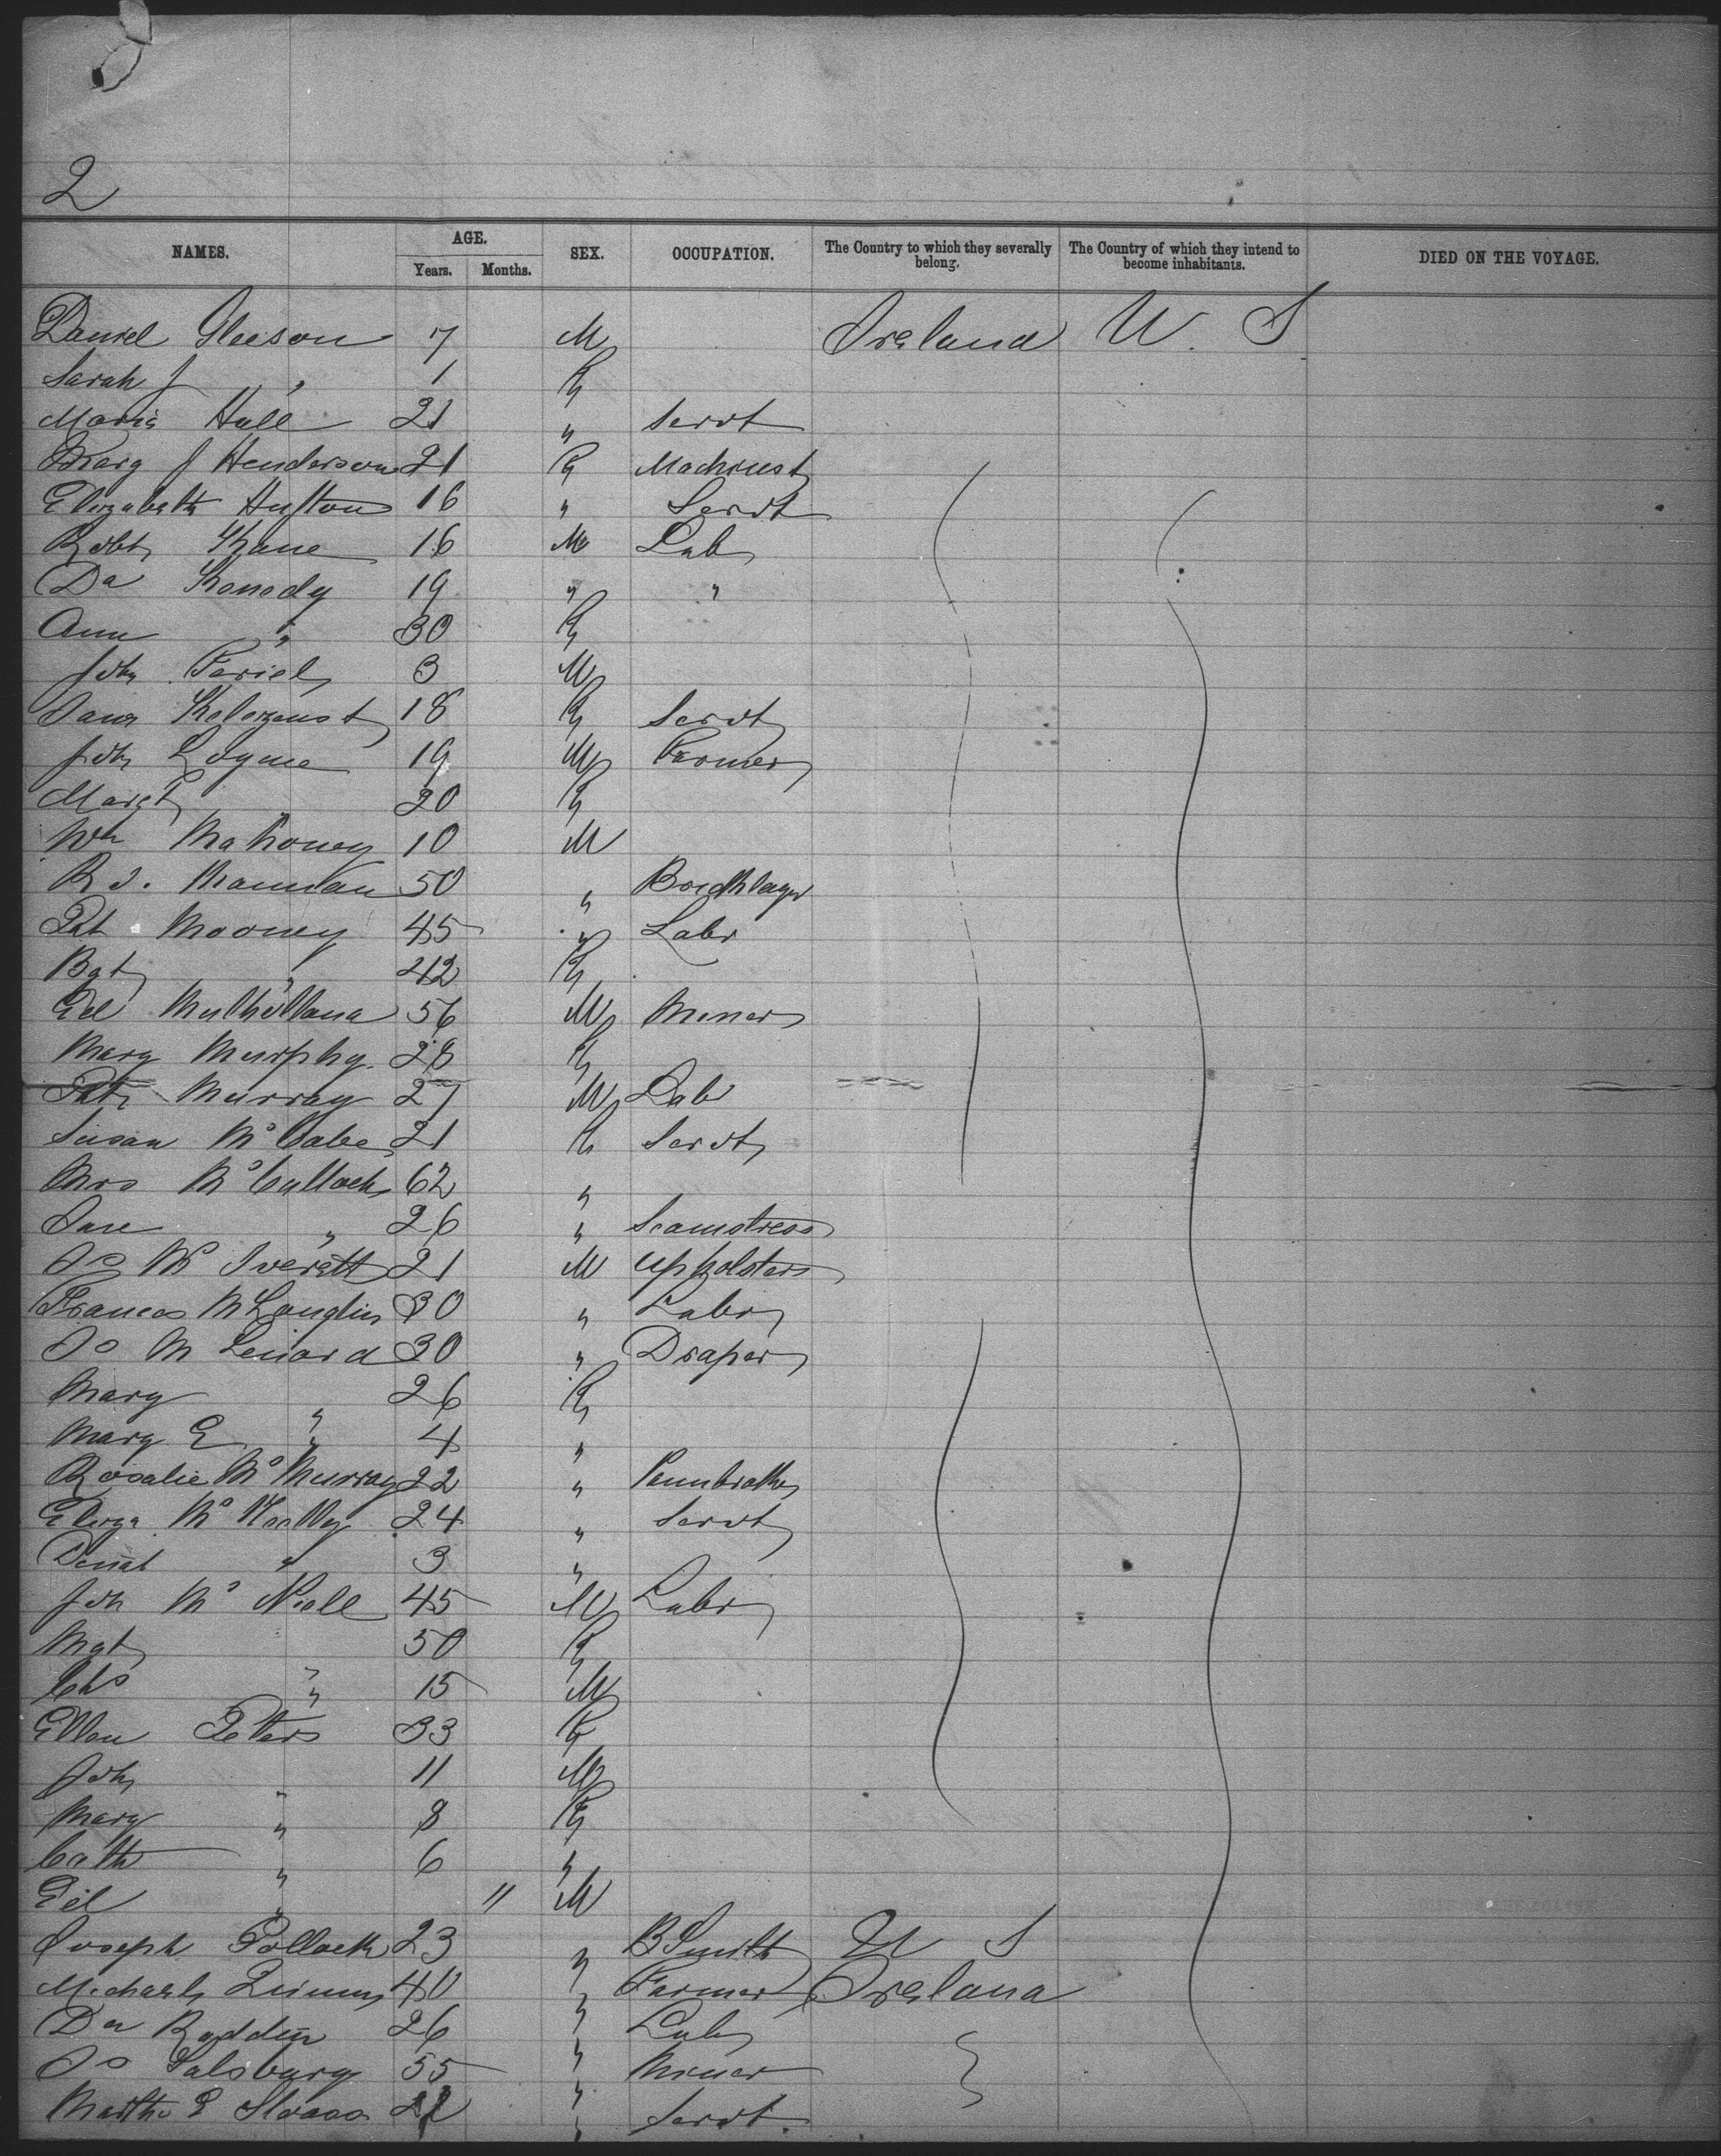 2
NAMES. AGE. SEX. OCCUPATION. The Country to which they severally belong. The Country of which they intend to become inhabitants. DIED ON THE VOYAGE.
Years. Months.
Daniel Gleeson 7 M Ireland U. S
Sarah J " 1 F
Maria Hall 21 " Servt
Marg J Henderson 21 F Machinist
Elizabeth Huston 16 " Servt
Robt Kane 16 M Lab
Da Kenedy 19 " "
Ann " 30 F
John 3 M
Jane 18 F Servt
John Logue 19 M Farmer
Margt 20 F
Wm Mahoney 10 M
R J. Mannian 50 "
Pat Mooney 45 " Labr
Bgt " 42 F
Ed Mulholland 56 M Miner
Mary Murphy. 28 F
Pat Murray 27 M Lab
Susan McCabe 21 F Servt
Mrs McCulloch 62 "
Jane " 26 " Seamstress
Jo Mc Iveratt 21 M Upholster
Frances McLauglin 30 " Labr
Jo M Lenard 30 " Draper
Mary " 26 F
Mary E " 4 "
Rosalie McMurray 22 "
Eliza McNally 24 " Servt
" 3 "
John McNiell 45 M Labr
Mgt " 50 F
Chs " 15 M
Ellen Peters 33 F
John " 11 M
Mary " 8 F
Cath " 6 "
Ed " 11 M
Joseph Pollock 23 " B Smith U S
Michael 40 " Farmer Ireland
Da Roddin 26 " Lab
Jo Salsburg 55 " Miner
Martha E " Servt.